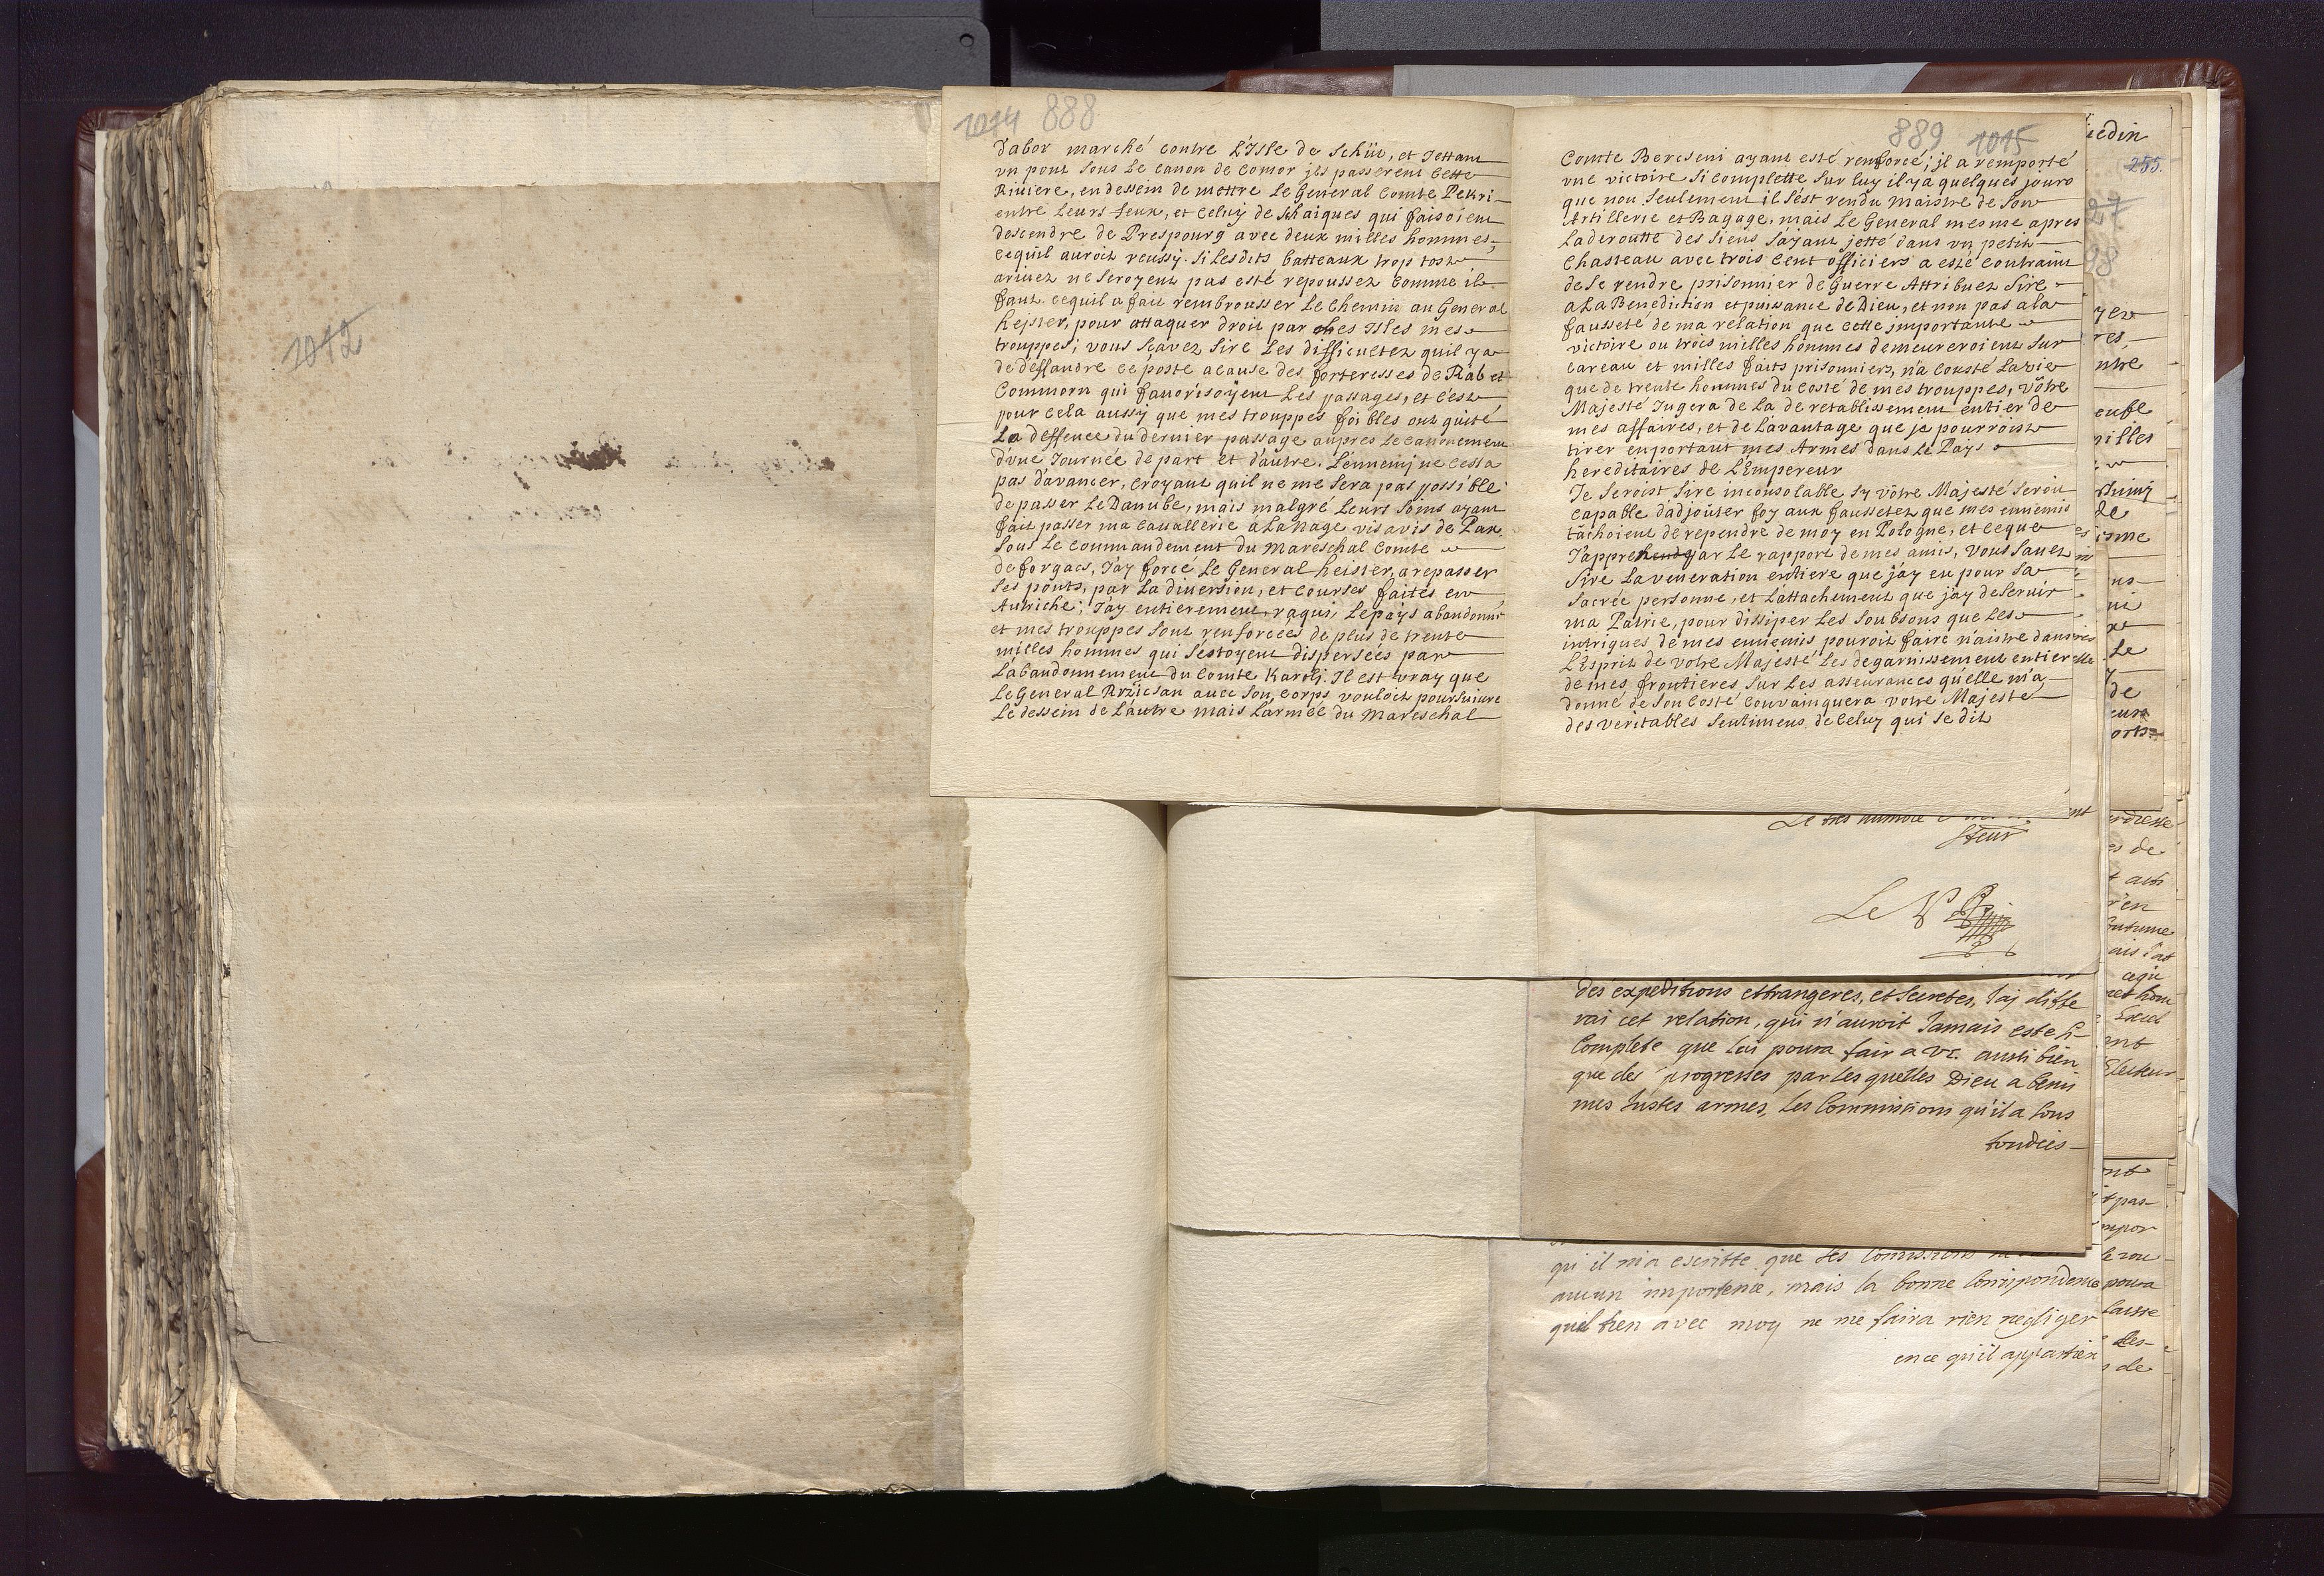 1012
1014 888
d'abor marché contre L'Isle de Schüt, et Jettant
vn pont sous Le canon de Comor jls passerent cette
Riuiere, en dessein de mettre Le General Comte Pekri
entre Leurs feux, et celuy de schaiques qui faisoient
descendre de Prespourg avec deux milles hommes,
cequil auroit reussy. si Lesdits batteaux trop tost
ariuez ne seroyent pas esté repoussez comme il
faut. cequil a fait rembrousser Le chemin au General
hejster, pour attaquer droit par les Isles mes
trouppes; vous scavez sire Les difficultez quil ya
de deffandre ce poste acause des forteresses de Rab et
Commorn qui fauorisoyent Les passages, et c'est
pour cela aussy que mes trouppes foibles ont quité
La deffence du dernier passage aupres Le canonement
d'vne Journée de part et d'autre. L'ennemj ne cessa
pas d'avancer, croyant quil ne me sera pas possible
de passer Le Danube, mais malgré Leurs soins ayant
fait passer ma cauallerie à La Nage vis avis de Pax
sous Le commandement du Mareschal Comte
de forgacs, J'ay forcé Le General heister, arepasser
ses ponts, par La diuersion, et courses faites en
Autriche; J'ay entierement raquis Lepays abandonné
et mes trouppes sont renforcées de plus de trente
milles hommes qui s'estoyent dispersées par
L'abandonnement du Comte Karoli. Il est vray que
Le General Rrziczan auec son corps vouloit poursuiure
Le dessein de L'autre mais L'armée du Mareschal
889 1015
Comte Berceseni ayant esté renforcé; il a remporté
vne victoire si complette sur luy il ya quelques jours
que non seulement il s'est rendu maistre de son
Artillerie et Bagage, mais Le General mesme apres
La deroutte des siens s'ayant jetté dans vn petit
chasteau avec trois cent officiers a esté contraint
de se rendre prisonnier de Guerre Attribuez sire
a La Benediction et puissance de Dieu, et non pas ala
fausseté de ma relation que cette jmportante
victoire ou trois milles hommes demeureroient sur
careau et milles faits prisonniers, n'a cousté
que de trente hommes du costé de mes trouppes, Vôtre
Majesté Jugera de La de retablissement entier de
mes affaires, et de L'avantage que je pourroist
tirer en portant mes Armes dans Le Pays
hereditaires de L'Empereur
Je seroist sire inconsolable sy vôtre Majesté seroit
capable d'adjouter foy aux faussetez que mes ennemis
tâchoient de rependre de moy en Pologne, et ceque
J'apprehend par Le rapport de mes amis, Vous sauez
sire La veneration entiere que j'ay eu pour sa
sacrée personne, et L'attachement que jay de seruir
ma Patrie, pour dissiper Les soubsons que Les
intrigues de mes ennemis pouroit faire naistre dans
L'Esprit de votre Majesté Les degarnissement entier
de mes frontieres sur Les asseurances qu'elle m'a
donné de son costé convainquera votre Majesté
des veritables sentimens de celuy qui se dit
Le tres humble
steur
Le
des expeditions ettrangeres, et secretes, J'aj diffe
rai cet relation, qui n'auroit Jamais este si
Complete que lui poura fair a V. aussi bien
que des progresses par les quelles Dieu a benis
mes Justes armes, Les Commissions qu'il a sous
tondeis
qu il m'a escritte que ses Comissions
aucun importence, mais la bonne Correspondence
quil tien avec moy ne me faira rien negliger
en ce qu'il appartien
edin
255.
27
98
ntre
milles
de
Le
de
es de
r'en
ais J'at
Electeur
poura
laisse
Les
de